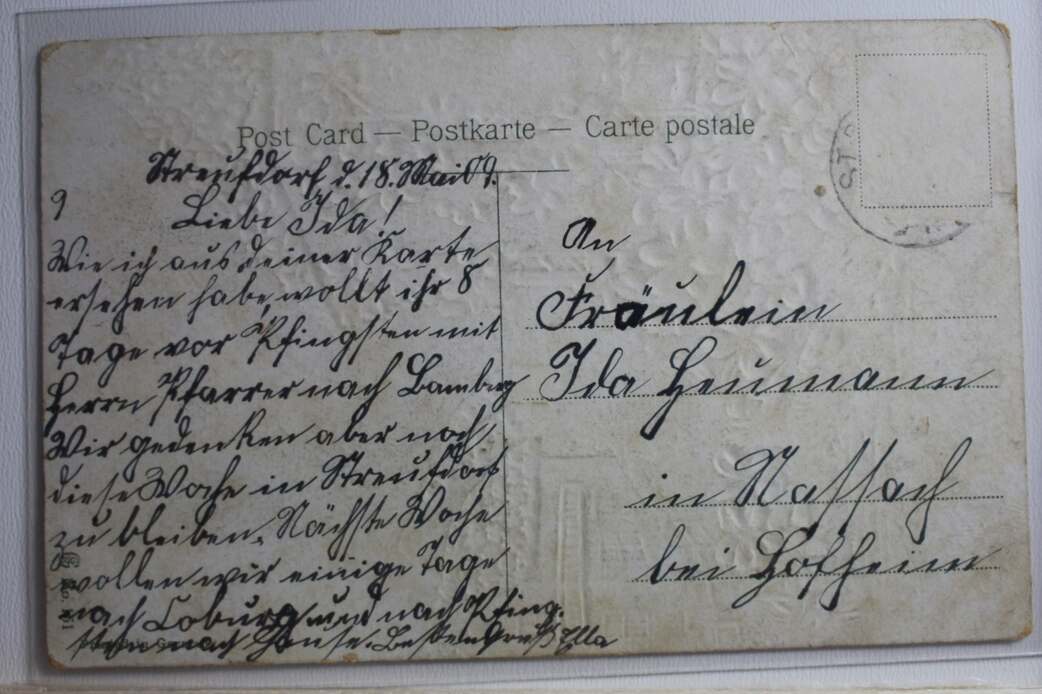 Post Card — Postkarte — Carte postale
Streufdorf d. 18. Mai 09.
9
Liebe Ida!
Wie ich aus deiner Karte
ersehen habe, wollt ihr 8
Tage vor Pfingsten mit
Herrn Pfarrer nach Bamberg
Wir gedenken aber noch
diese Woche in Streufdorf
zu bleiben. Nächste Woche
wollen wir einige Tage
nach Coburg und nach Pfing-
sten nach Hause. Besten Gruß Ella
An
Fräulein
Ida Heumann
in Nassach
bei Hofheim
ST